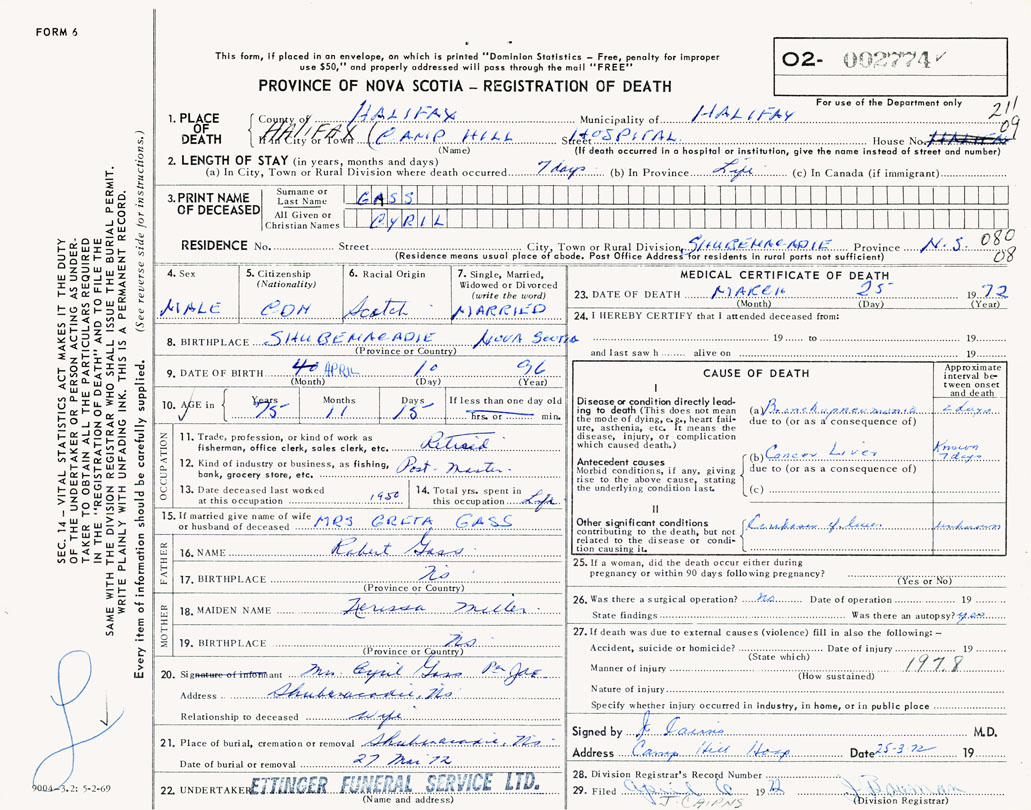 FORM 6
This form, if placed in an envelope, on which is printed "Dominion Statistics – Free, penalty for improper
use $50," and properly addressed will pass through the mail "FREE"
O2- 002774
PROVINCE OF NOVA SCOTIA – REGISTRATION OF DEATH
For use of the Department only
211
09
1. PLACE OF DEATH
County of HALIFAX Municipality of HALIFAX
HALIFAX If in City or Town (CAMP HILL Street HOSPITAL House No.
(Name) (If death occurred in a hospital or institution, give the name instead of street and number)
2. LENGTH OF STAY (in years, months and days)
(a) In City, Town or Rural Division where death occurred 7 days (b) In Province Life (c) In Canada (if immigrant)
3. PRINT NAME OF DECEASED
Surname or Last Name GASS
All Given or Christian Names CYRIL
RESIDENCE No. Street City, Town or Rural Division SHUBENACADIE Province N.S. 080
08
(Residence means usual place of abode. Post Office Address for residents in rural parts not sufficient)
4. Sex MALE
5. Citizenship (Nationality) CDN
6. Racial Origin Scotch
7. Single, Married, Widowed or Divorced (write the word) MARRIED
8. BIRTHPLACE SHUBENACADIE NOVA SCOTIA
(Province or Country)
9. DATE OF BIRTH APRIL 10 96
(Month) (Day) (Year)
10. AGE in Years 75 Months 11 Days 15 If less than one day old hrs. or min.
OCCUPATION
11. Trade, profession, or kind of work as fisherman, office clerk, sales clerk, etc. Retired
12. Kind of industry or business, as fishing, bank, grocery store, etc. Post-Master
13. Date deceased last worked at this occupation 1950
14. Total yrs. spent in this occupation Life
15. If married give name of wife or husband of deceased MRS GRETA GASS
FATHER
16. NAME Robert Gass
17. BIRTHPLACE NS
(Province or Country)
MOTHER
18. MAIDEN NAME Nerissa Miller
19. BIRTHPLACE NS
(Province or Country)
20. Signature of informant Mrs. Cyril Gass Per
Address Shubenacadie, NS
Relationship to deceased Wife
21. Place of burial, cremation or removal Shubenacadie, NS
Date of burial or removal 27 Mar 72
22. UNDERTAKER ETTINGER FUNERAL SERVICE LTD.
(Name and address)
MEDICAL CERTIFICATE OF DEATH
23. DATE OF DEATH MARCH 25 1972
(Month) (Day) (Year)
24. I HEREBY CERTIFY that I attended deceased from:
19 to 19
and last saw h alive on 19
CAUSE OF DEATH
Approximate interval between onset and death
I
Disease or condition directly leading to death (This does not mean the mode of dying, e.g., heart failure, asthenia, etc. It means the disease, injury, or complication which caused death.)
(a) Bronchopneumonia 2 days
due to (or as a consequence of)
Antecedent causes
Morbid conditions, if any, giving rise to the above cause, stating the underlying condition last.
(b) Cancer Liver Known 7 days
due to (or as a consequence of)
(c)
II
Other significant conditions contributing to the death, but not related to the disease or condition causing it.
Cirrhosis of liver unknown
25. If a woman, did the death occur either during pregnancy or within 90 days following pregnancy?
(Yes or No)
26. Was there a surgical operation? No Date of operation 19
State findings Was there an autopsy? yes
27. If death was due to external causes (violence) fill in also the following: –
Accident, suicide or homicide? Date of injury 19
(State which)
Manner of injury 197.8
(How sustained)
Nature of injury
Specify whether injury occurred in industry, in home, or in public place
Signed by J. Cairns M.D.
Address Camp Hill Hosp Date 25-3-72 19
28. Division Registrar's Record Number
29. Filed April 6 1972
J. CAIRNS (Division Registrar)
SEC. 14 – VITAL STATISTICS ACT MAKES IT THE DUTY
OF THE UNDERTAKER OR PERSON ACTING AS UNDER-
TAKER TO OBTAIN ALL THE PARTICULARS REQUIRED
IN THE "REGISTRATION OF DEATH" AND TO FILE THE
SAME WITH THE DIVISION REGISTRAR WHO SHALL ISSUE THE BURIAL PERMIT.
WRITE PLAINLY WITH UNFADING INK. THIS IS A PERMANENT RECORD.
Every item of information should be carefully supplied. (See reverse side for instructions.)
9004-3.2: 5-2-69